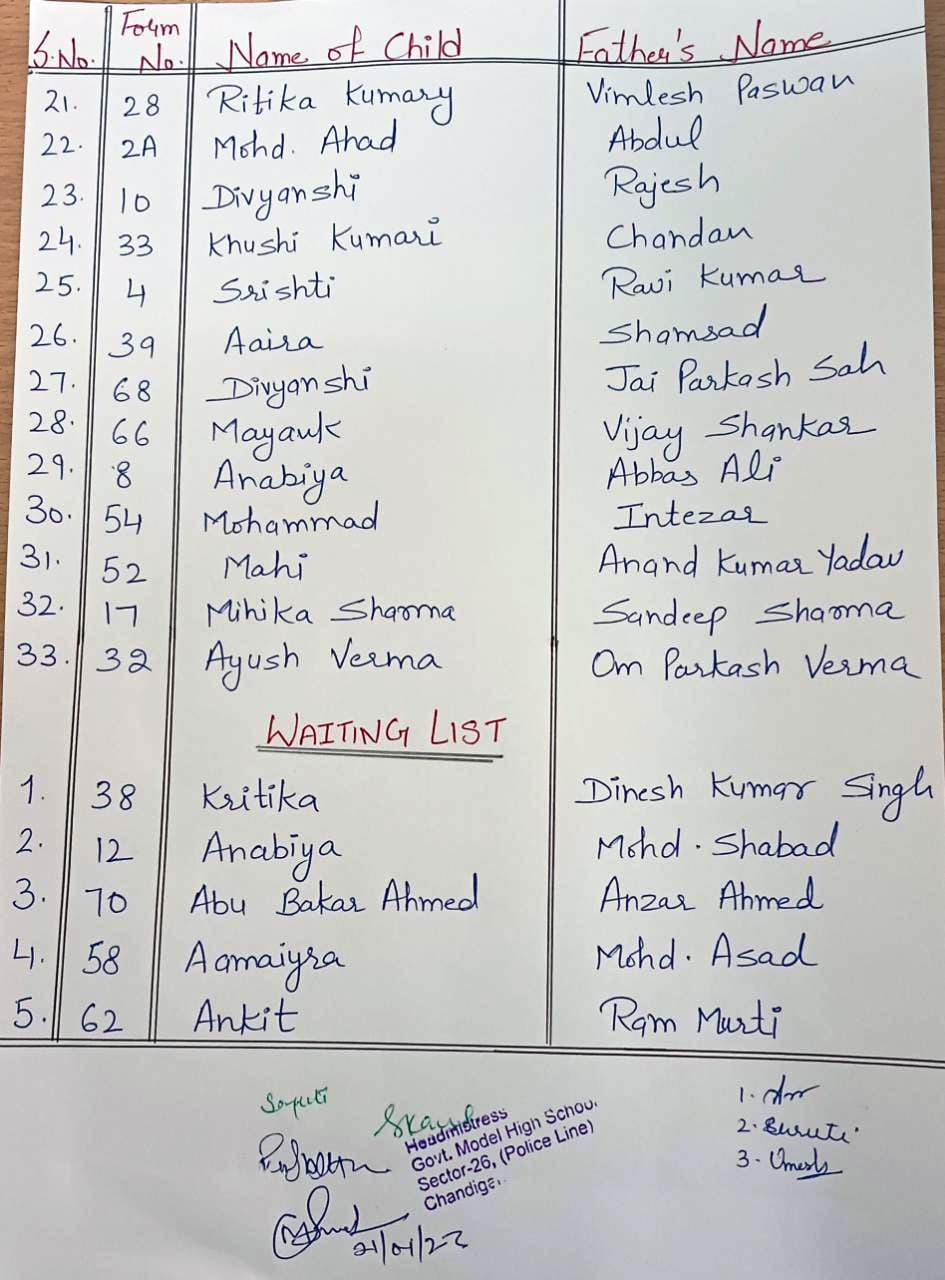 S.No. Form No. Name of Child Father's Name
21. 28 Ritika Kumary Vimlesh Paswan
22. 2A Mohd. Ahad Abdul
23. 10 Divyanshi Rajesh
24. 33 Khushi Kumari Chandan
25. 4 Srishti Ravi Kumar
26. 39 Aaira Shamsad
27. 68 Divyanshi Jai Parkash Sah
28. 66 Mayank Vijay Shankar
29. 8 Anabiya Abbas Ali
30. 54 Mohammad Intezar
31. 52 Mahi Anand Kumar Yadav
32. 17 Mihika Sharma Sandeep Sharma
33. 32 Ayush Verma Om Parkash Verma
WAITING LIST
1. 38 Kritika Dinesh Kumar Singh
2. 12 Anabiya Mohd. Shabad
3. 70 Abu Bakar Ahmed Anzar Ahmed
4. 58 Aamaiyra Mohd. Asad
5. 62 Ankit Ram Murti
Headmistress
Govt. Model High School
Sector-26, (Police Line)
Chandiga
1.
2.
3. Umesh